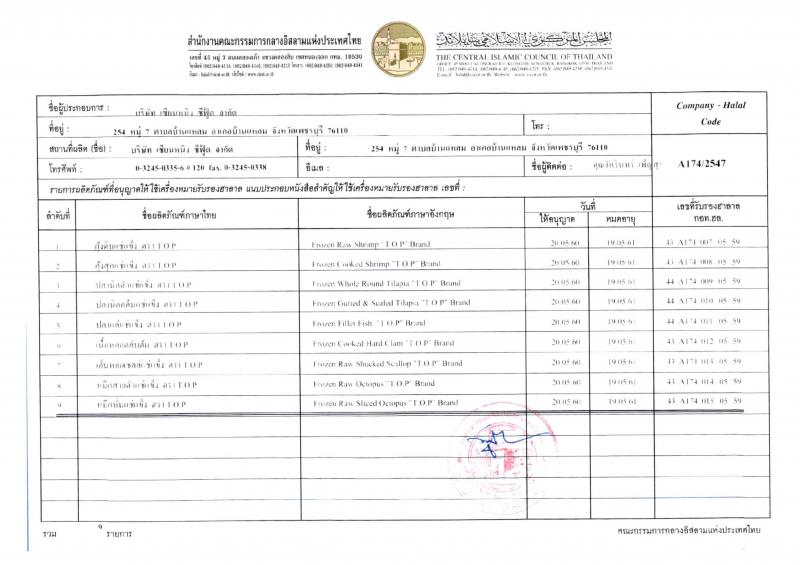 สำนักงานคณะกรรมการกลางอิสลามแห่งประเทศไทย
THE CENTRAL ISLAMIC COUNCIL OF THAILAND
ชื่อผู้ประกอบการ : บริษัท เซียนหนิง ซีฟู้ด จำกัด
Company - Halal
Code
ที่อยู่ : 254 หมู่ 7 ตำบลบ้านแหลม อำเภอบ้านแหลม จังหวัดเพชรบุรี 76110 โทร :
สถานที่ผลิต (ชื่อ) : บริษัท เซียนหนิง ซีฟู้ด จำกัด ที่อยู่ : 254 หมู่ 7 ตำบลบ้านแหลม อำเภอบ้านแหลม จังหวัดเพชรบุรี 76110
โทรศัพท์ : 0-3245-0335-6 # 120 fax. 0-3245-0338 อีเมล : ชื่อผู้ติดต่อ : A174/2547
รายการผลิตภัณฑ์ที่อนุญาตให้ใช้เครื่องหมายรับรองฮาลาล แนบประกอบหนังสือสำคัญให้ใช้เครื่องหมายรับรองฮาลาล เลขที่ :
ลำดับที่ ชื่อผลิตภัณฑ์ภาษาไทย ชื่อผลิตภัณฑ์ภาษาอังกฤษ วันที่ เลขที่รับรองฮาลาล
ให้อนุญาต หมดอายุ กอท.ฮล.
1 กุ้งดิบแช่แข็ง ตรา T.O.P Frozen Raw Shrimp "T.O.P" Brand 20.05.60 19.05.61 43 A174 007 05 59
2 กุ้งสุกแช่แข็ง ตรา T.O.P Frozen Cooked Shrimp "T.O.P" Brand 20.05.60 19.05.61 43 A174 008 05 59
3 ปลานิลตัวแช่แข็ง ตรา T.O.P Frozen Whole Round Tilapia "T.O.P" Brand 20.05.60 19.05.61 44 A174 009 05 59
4 ตรา T.O.P Frozen Gutted & Scaled Tilapia "T.O.P" Brand 20.05.60 19.05.61 44 A174 010 05 59
5 ปลาแล่แช่แข็ง ตรา T.O.P Frozen Fillet Fish "T.O.P" Brand 20.05.60 19.05.61 44 A174 011 05 59
6 ตรา T.O.P Frozen Cooked Hard Clam "T.O.P" Brand 20.05.60 19.05.61 43 A174 012 05 59
7 เอ็นหอยเชลล์แช่แข็ง ตรา T.O.P Frozen Raw Shucked Scallop "T.O.P" Brand 20.05.60 19.05.61 43 A174 013 05 59
8 หมึกสายตัวแช่แข็ง ตรา T.O.P Frozen Raw Octopus "T.O.P" Brand 20.05.60 19.05.61 43 A174 014 05 59
9 หมึกหั่นแช่แข็ง ตรา T.O.P Frozen Raw Sliced Octopus "T.O.P" Brand 20.05.60 19.05.61 43 A174 015 05 59
รวม 9 รายการ คณะกรรมการกลางอิสลามแห่งประเทศไทย